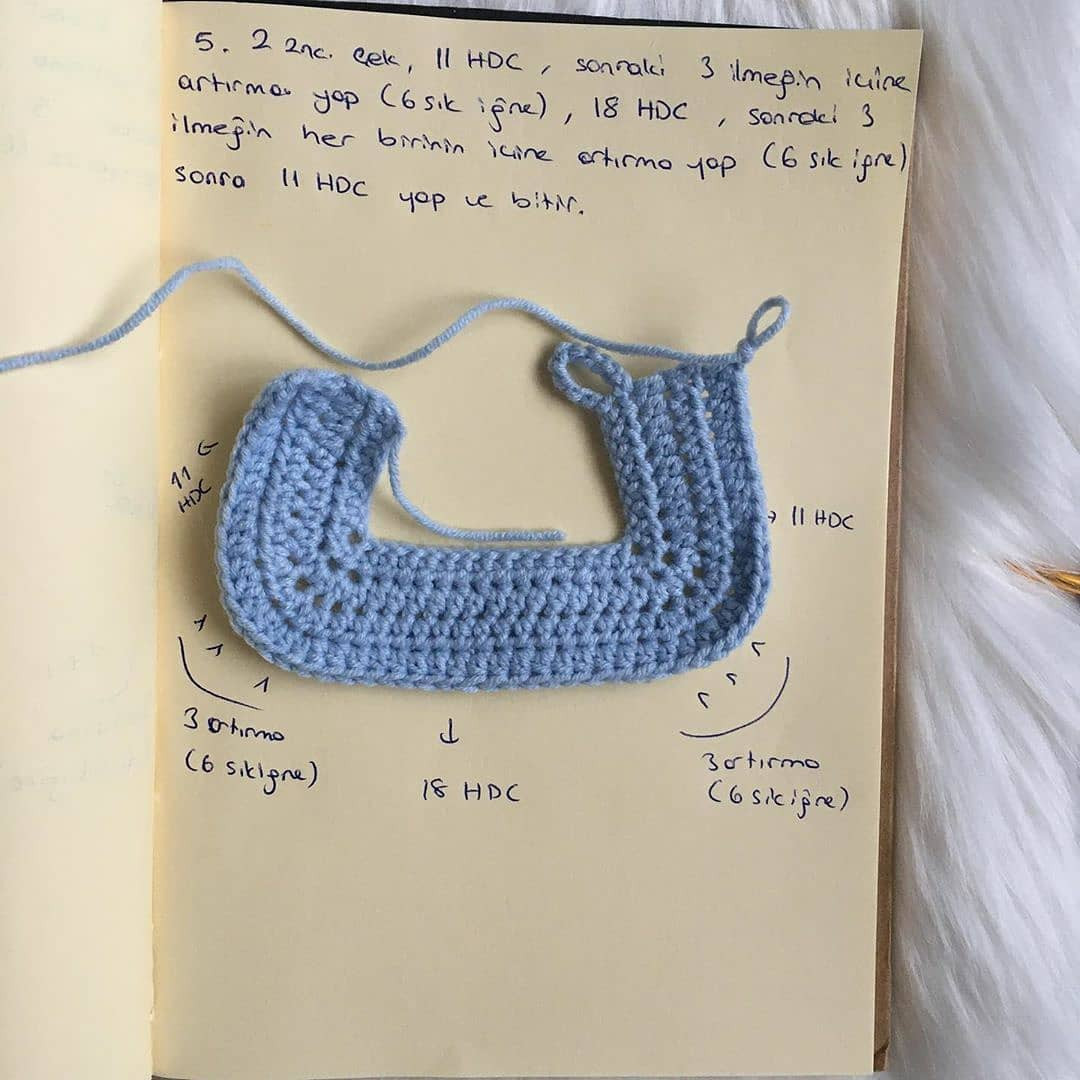 5. 2 znc. çek, 11 HDC, sonraki 3 ilmeğin içine
artırma yap (6 sık iğne), 18 HDC, sonraki 3
ilmeğin her birinin içine artırma yap (6 sık iğne)
sonra 11 HDC yap ve bitir.
11
HDC
→ 11 HDC
3 artırma
(6 sık iğne)
↓
18 HDC
3 artırma
(6 sık iğne)